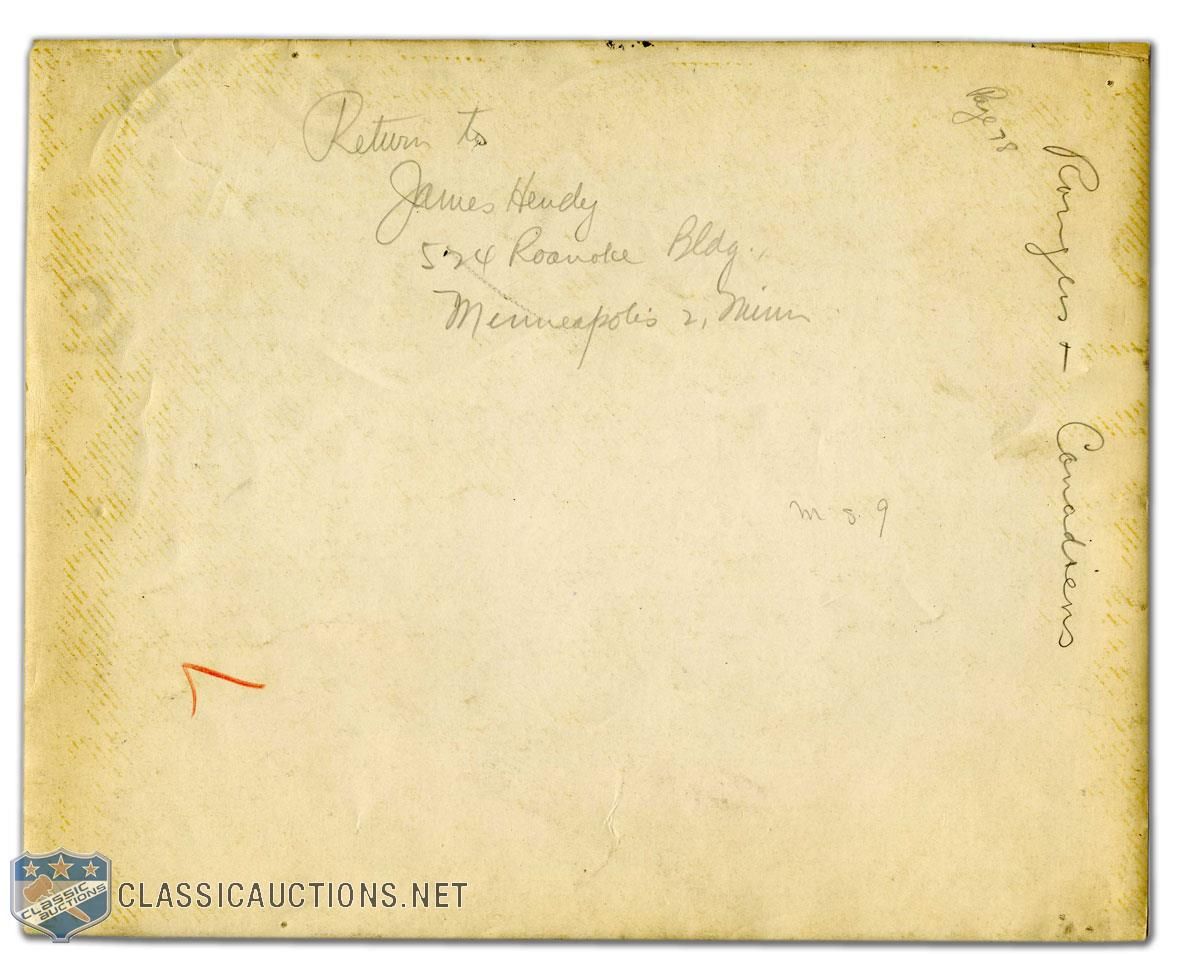 Return to
James Hendy
524 Roanoke Bldg.,
Minneapolis 2, Minn
Page 78
Rangers + Canadiens
M S 9
7
CLASSIC AUCTIONS
CLASSICAUCTIONS.NET